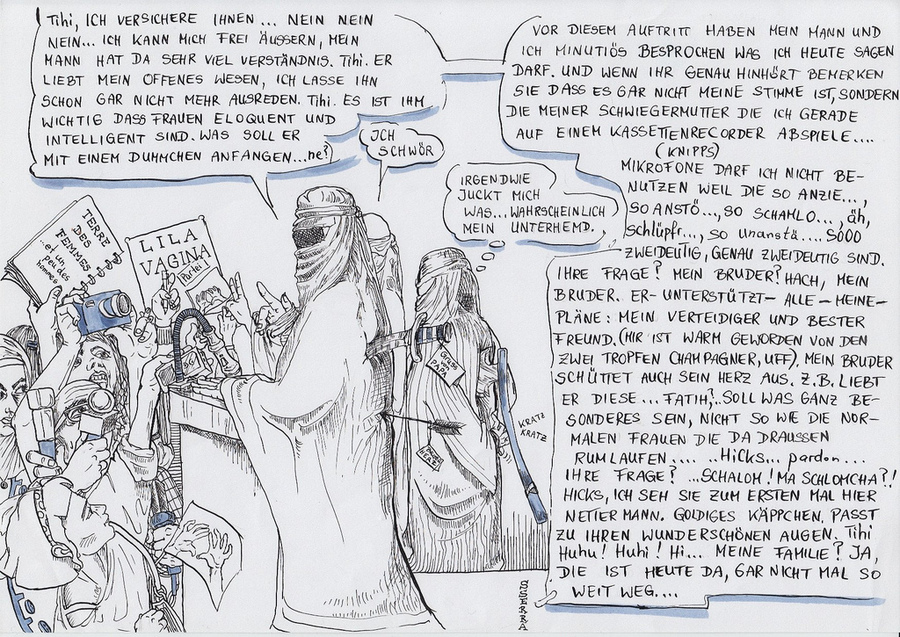 Tihi, ICH VERSICHERE IHNEN... NEIN NEIN
NEIN... ICH KANN MICH FREI ÄUSSERN, MEIN
MANN HAT DA SEHR VIEL VERSTÄNDNIS. Tihi. ER
LIEBT MEIN OFFENES WESEN, ICH LASSE IHN
SCHON GAR NICHT MEHR AUSREDEN. Tihi. ES IST IHM
WICHTIG DASS FRAUEN ELOQUENT UND
INTELLIGENT SIND. WAS SOLL ER
MIT EINEM DUHMCHEN ANFANGEN...ne?
ICH
SCHWÖR
VOR DIESEM AUFTRITT HABEN MEIN MANN UND
ICH MINUTIÖS BESPROCHEN WAS ICH HEUTE SAGEN
DARF. UND WENN IHR GENAU HINHÖRT BEMERKEN
SIE DASS ES GAR NICHT MEINE STIMME IST, SONDERN
DIE MEINER SCHWIEGERMUTTER DIE ICH GERADE
AUF EINEM KASSETTENRECORDER ABSPIELE....
(KNIPPS)
MIKROFONE DARF ICH NICHT BE-
NUTZEN WEIL DIE SO ANZIE...,
SO ANSTÖ..., SO SCHAMLO..., äh,
schlüpfr..., so unanstä.... SOOO
ZWEIDEUTIG, GENAU ZWEIDEUTIG SIND.
IHRE FRAGE? MEIN BRUDER? HACH, MEIN
BRUDER. ER-UNTERSTÜTZT-ALLE-MEINE-
PLÄNE: MEIN VERTEIDIGER UND BESTER
FREUND. (MIR IST WARM GEWORDEN VON DEN
ZWEI TROPFEN CHAMPAGNER, UFF). MEIN BRUDER
SCHÜTTET AUCH SEIN HERZ AUS. Z.B. LIEBT
ER DIESE... FATIH?.. SOLL WAS GANZ BE-
SONDERES SEIN, NICHT SO WIE DIE NOR-
MALEN FRAUEN DIE DA DRAUSSEN
RUMLAUFEN.... ..HICKS... pardon...
IHRE FRAGE? ...SCHALOM! MA SCHLOMCHA?!
HICKS, ICH SEH SIE ZUM ERSTEN MAL HIER
NETTER MANN. GOLDIGES KÄPPCHEN, PASST
ZU IHREN WUNDERSCHÖNEN AUGEN. Tihi
Huhu! Huhi! Hi... MEINE FAMILIE? JA,
DIE IST HEUTE DA, GAR NICHT MAL SO
WEIT WEG....
IRGENDWIE
JUCKT MICH
WAS... WAHRSCHEINLICH
MEIN UNTERHEMD.
TERRE
DES
FEMMES
LILA
VAGINA
Partei
GRUSS
PAPA
KRATZ
KRATZ
SSERBA